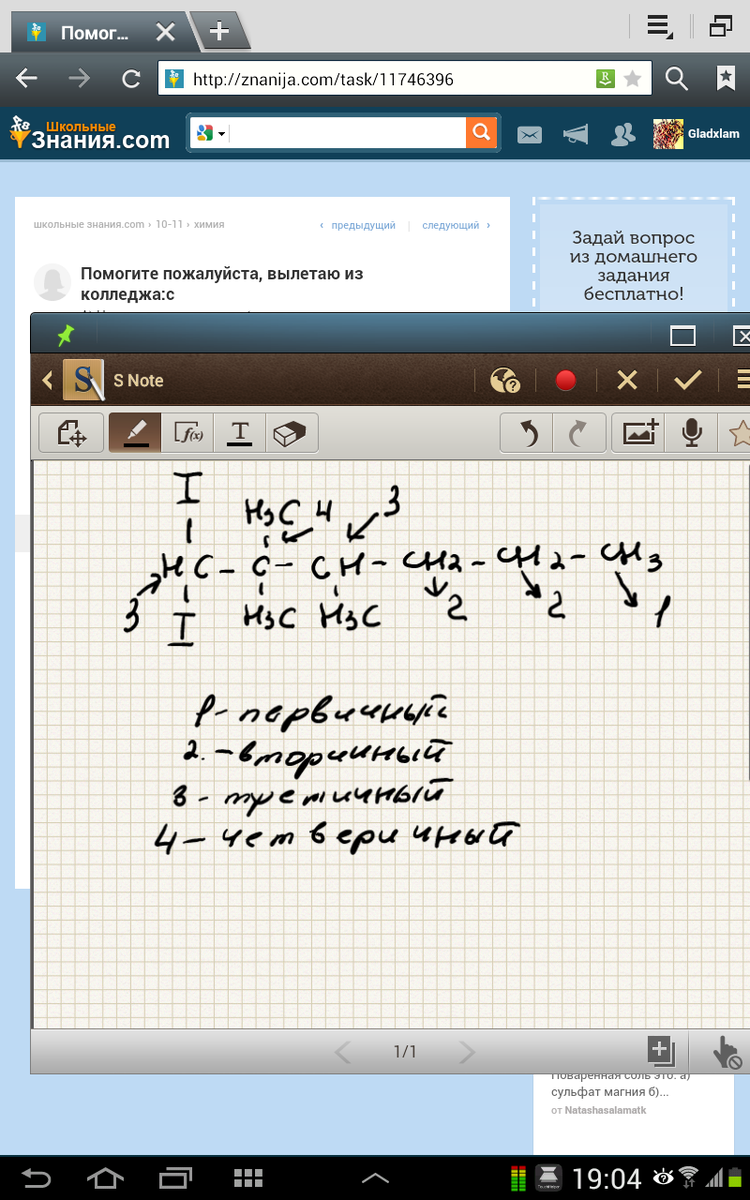 Помог...
http://znanija.com/task/11746396
Школьные
Знания.com
Gladxlam
школьные знания.com › 10-11 › химия
‹ предыдущий | следующий ›
Помогите пожалуйста, вылетаю из
колледжа:с
Задай вопрос
из домашнего
задания
бесплатно!
S Note
f(x) T
I
H3C 4 3
HC - C - CH - CH2 - CH2 - CH3
3 I H3C H3C 2 2 1
1 - первичный
2. - вторичный
3 - третичный
4 - четверичный
1/1
Поваренная соль это: а)
сульфат магния б)...
от Natashasalamatk
19:04